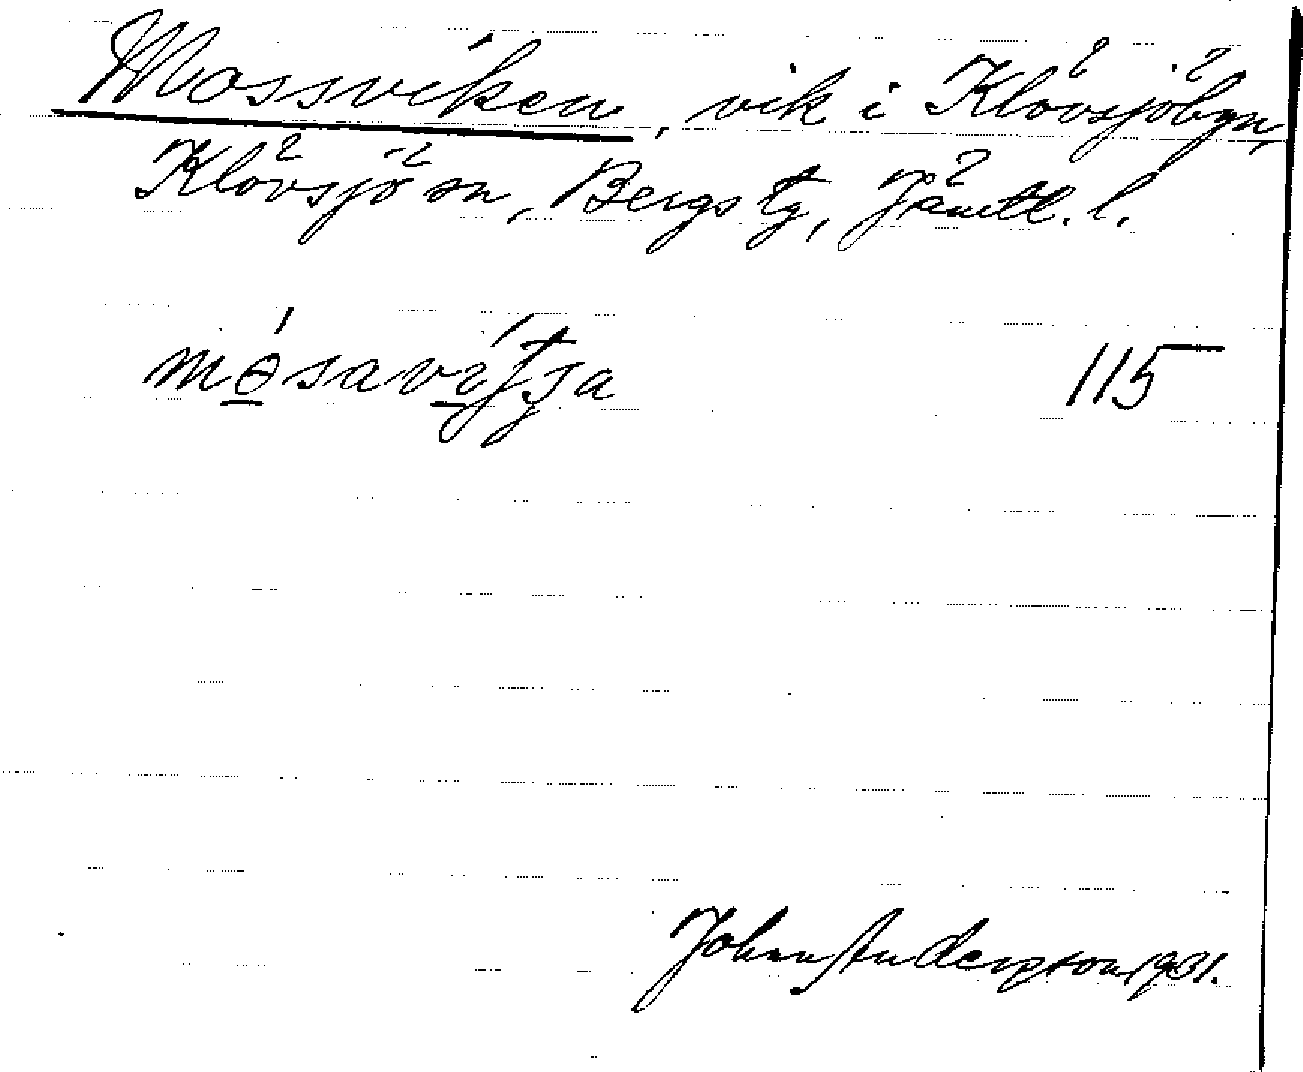 Mossviken, vik i Klövsjöbyn,
Klövsjö sn, Bergs tg, Jämtl. l.
mɵ́savítʃa 115
John Anderson 1931.